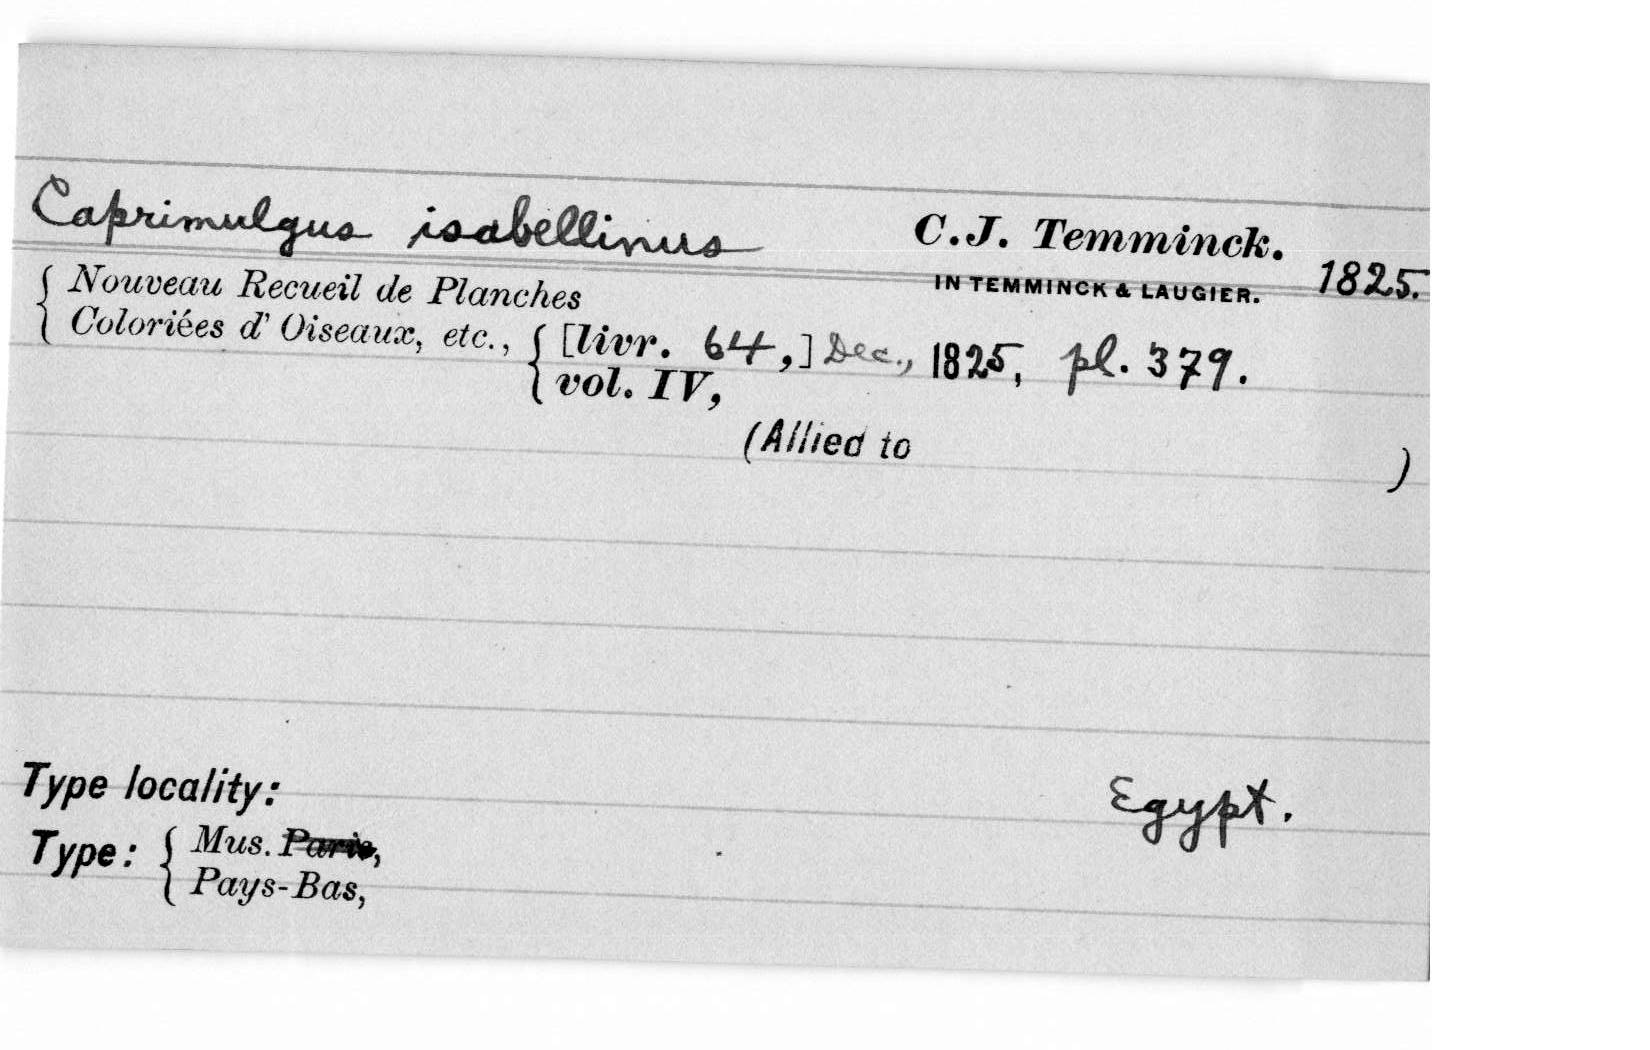 Caprimulgus isabellinus C.J. Temminck.
IN TEMMINCK & LAUGIER. 1825.
{ Nouveau Recueil de Planches
Coloriées d' Oiseaux, etc., { [livr. 64,] Dec., 1825, pl. 379.
vol. IV,
(Allied to )
Type locality: Egypt.
Type: { Mus. Paris,
Pays-Bas,